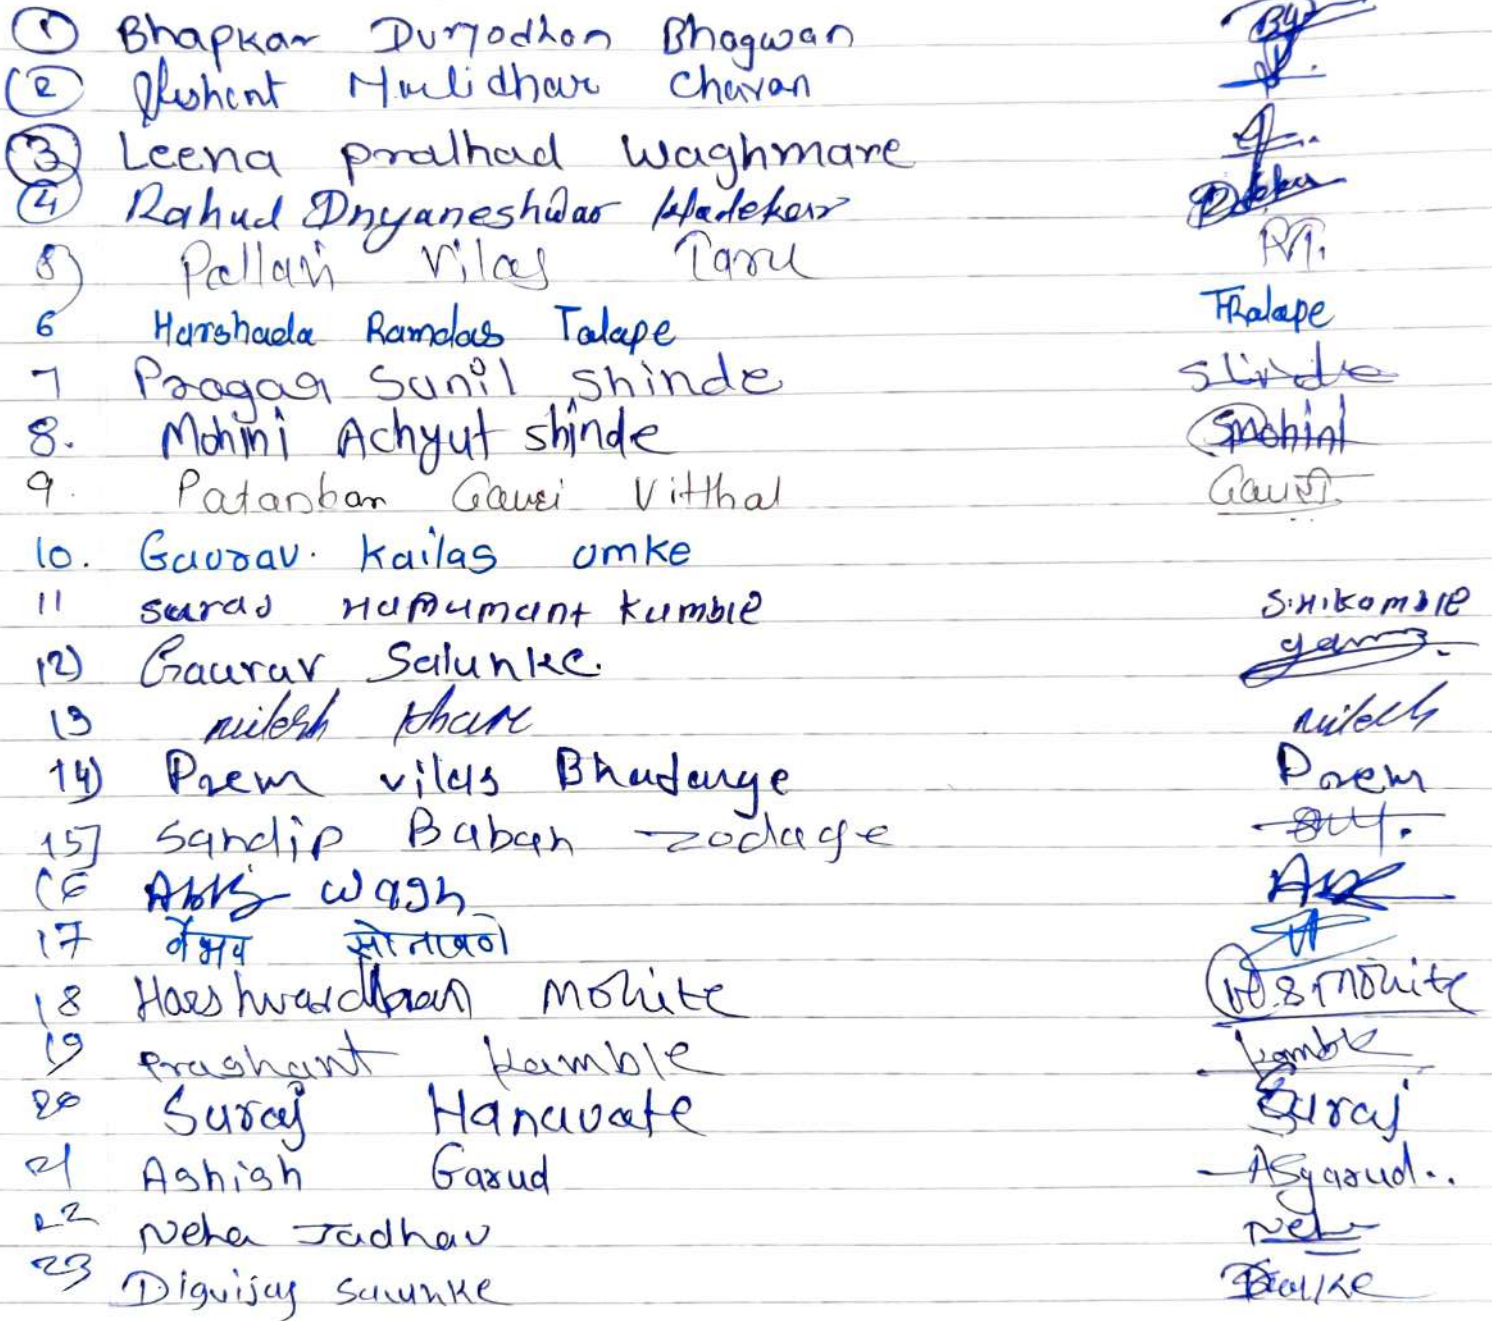 1 Bhapkar Duryodhan Bhagwan
2 Chavan
3 Leena pralhad Waghmare
4 Rahul Dnyaneshwar
5) Pallavi Vilas Taru R.T.
6 Harshada Ramdas Talape TRalape
7 Pragati Sunil Shinde Shinde
8. Mohini Achyut Shinde SMohini
9. Gauri Vitthal Gauri
10. Gaurav. Kailas omke
11 suraj Hanumant Kumble S.H.kamble
12) Gaurav Salunke.
13 nilesh khare nilesh
14) Prem vilas Bhadange Prem
15] Sandip Baban zodage
16 Wagh
17 वैभव सोनावणे
18 Harshvardhan Mohite Mohite
19 Prashant Kamble Kamble
20 Suraj Hanavate Suraj
21 Ashish Garud ASgarud..
22 Neha Jadhav Neha
23 Digvijay Salunke